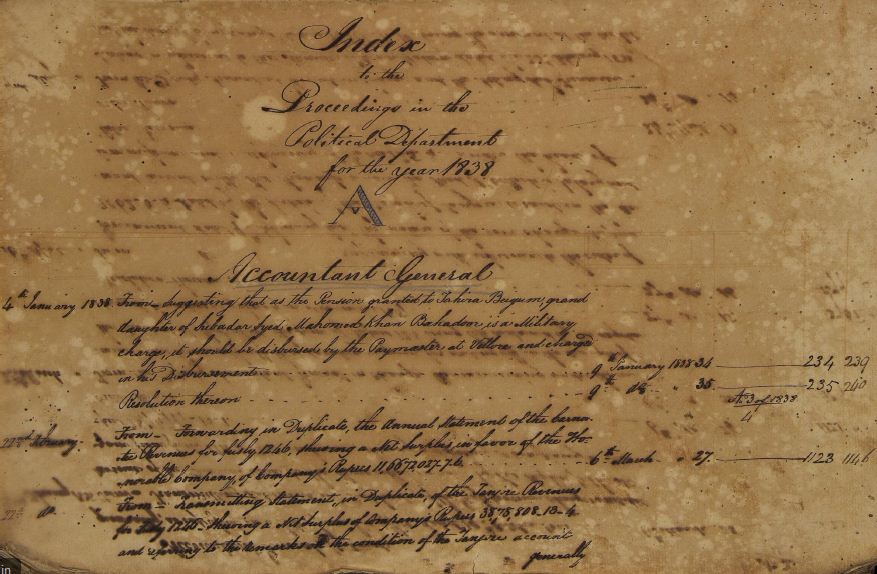 Index
to the
Proceedings in the
Political Department
for the year 1838
A
Accountant General
4th January 1838 From – Suggesting that as the Pension granted to Tahira Begum, grand
daughter of Subadar Syed Mahomed Khan Bahadoor is a Military
charge, it should be disbursed by the Paymaster at Vellore and charged
in his Disbursements 9th January 1838 34 234 239
Resolution thereon 9th do " 35 235 240
No 3 of 1838
4
22nd February From – Forwarding, in Duplicate, the Annual Statement of the Carna-
tic Revenues for fusly 1246, shewing a Net Surplus in favor of the Ho-
norable Company, of Company's Rupees 6th March " 27 1123 1146
22nd do From – Transmitting Statement, in Duplicate, of the Tanjore Revenues
for fusly 1246 shewing a Net Surplus of Company's Rupees 38,78,808.13.4
and referring to the remarks on the condition of the Tanjore account
generally
in